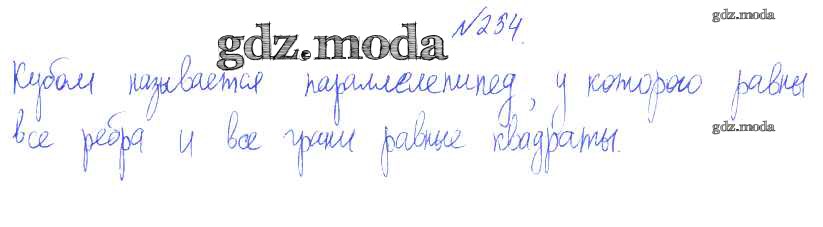 №234.
gdz.moda
gdz.moda
Кубом называется параллелепипед, у которого равны
все ребра и все грани равные квадраты.
gdz.moda